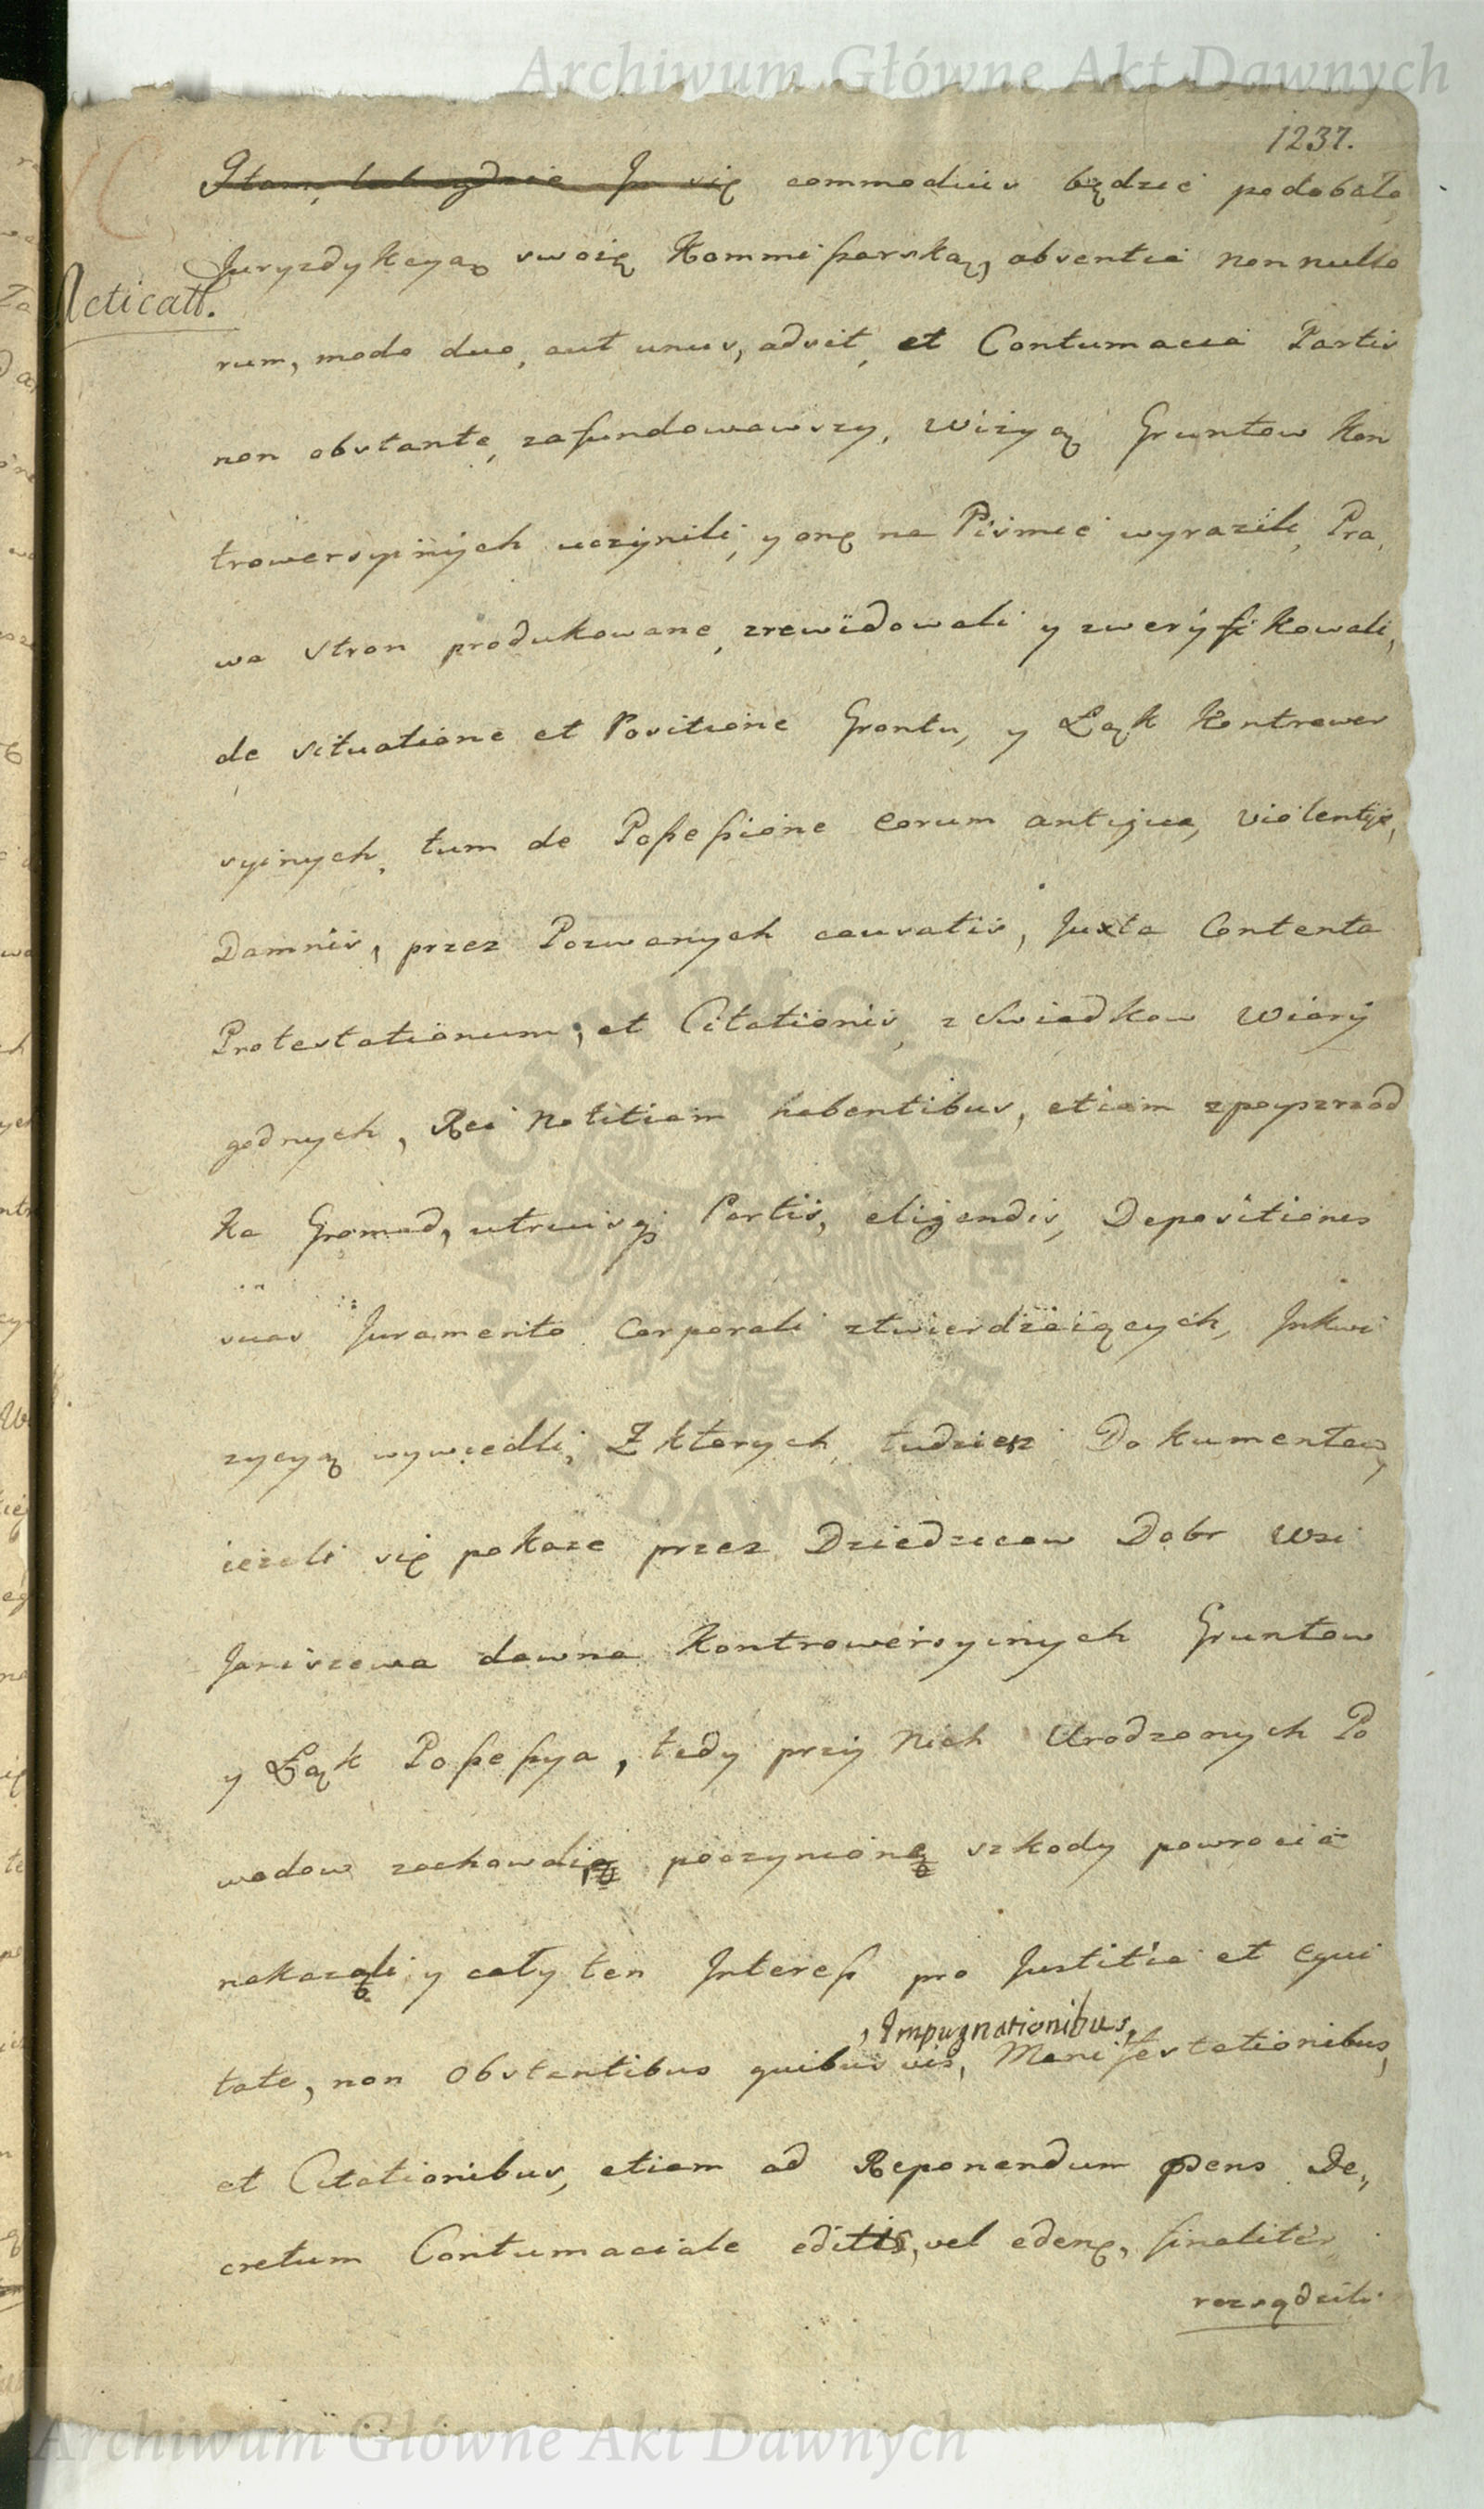 Archiwum Główne Akt Dawnych
1237.
Stanę, lub gdzie Jm się commodius będzie podobało
Juryzdykcyą swoię Kommißarską, absentia nonnullo
Acticatt.
rum, modo duo, aut unus, adsit, et Contumacia Partis
non obstante, zafundowawszy, Wizyą Gruntow Kon
trowersyinych uczynili, y onę na Pismie wyrazili, Pra,
wa stron produkowane, zrewidowali y zweryfikowali,
de situatione et Positione Grontu, y Łąk Kontrower
syinych, tum de Poßeßione eorum antiqua, violentijs,
Damnis, przez Pozwanych causatis, Juxta Contenta
Protestationum, et Citationis, z Swiadkow Wiary
godnych, Rei Notitiam habentibus, etiam zpoyszrzod
ka Gromad, utriusq; Partis, eligendis, Depositiones
suas Juramento Corporali ztwierdzaiących, Jnkwi
zycyą wywiedli, Z ktorych, tudziesz Dokumentow,
ieżeli się pokaze przez Dziedzicow Dobr Wsi
Jariszowa dawna Kontrowersyinych Gruntow
y Łąk Poßeßya, tedy przy Nich Urodzonych Po
wodow zachowali, poczynione szkody powrocić
nakazali, y cały ten Jntereß pro Justitia et Equi
, Impugnationibus,
tate, non Obstantibus quibusvis, Manifestationibus,
et Citationibus, etiam ad Reponendum psens De,,
cretum Contumaciale editis, vel edenę, finaliter
rozsądzili
ARCHIWUM GŁÓWNE AKT DAWNYCH
Archiwum Główne Akt Dawnych